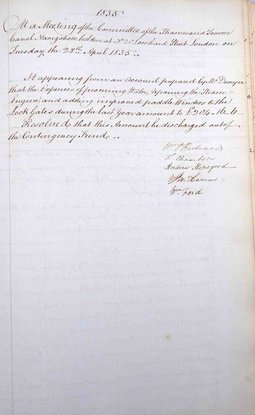 1835
At a Meeting of the Committee of the Thames and Severn
Canal Navigation holden at No 2 Lombard Street London on
Tuesday the 28th April 1835
It appearing from an Account prepared by Mr Denyer
that the Expense of procuring Water, repairing the Steam
Engine, and adding improved paddle Winders to the
Lock Gates during the last Year amount to £204
Resolved, that this Amount be discharged out of
the Contingency Fund
Wm
Andrew
Wm Ford